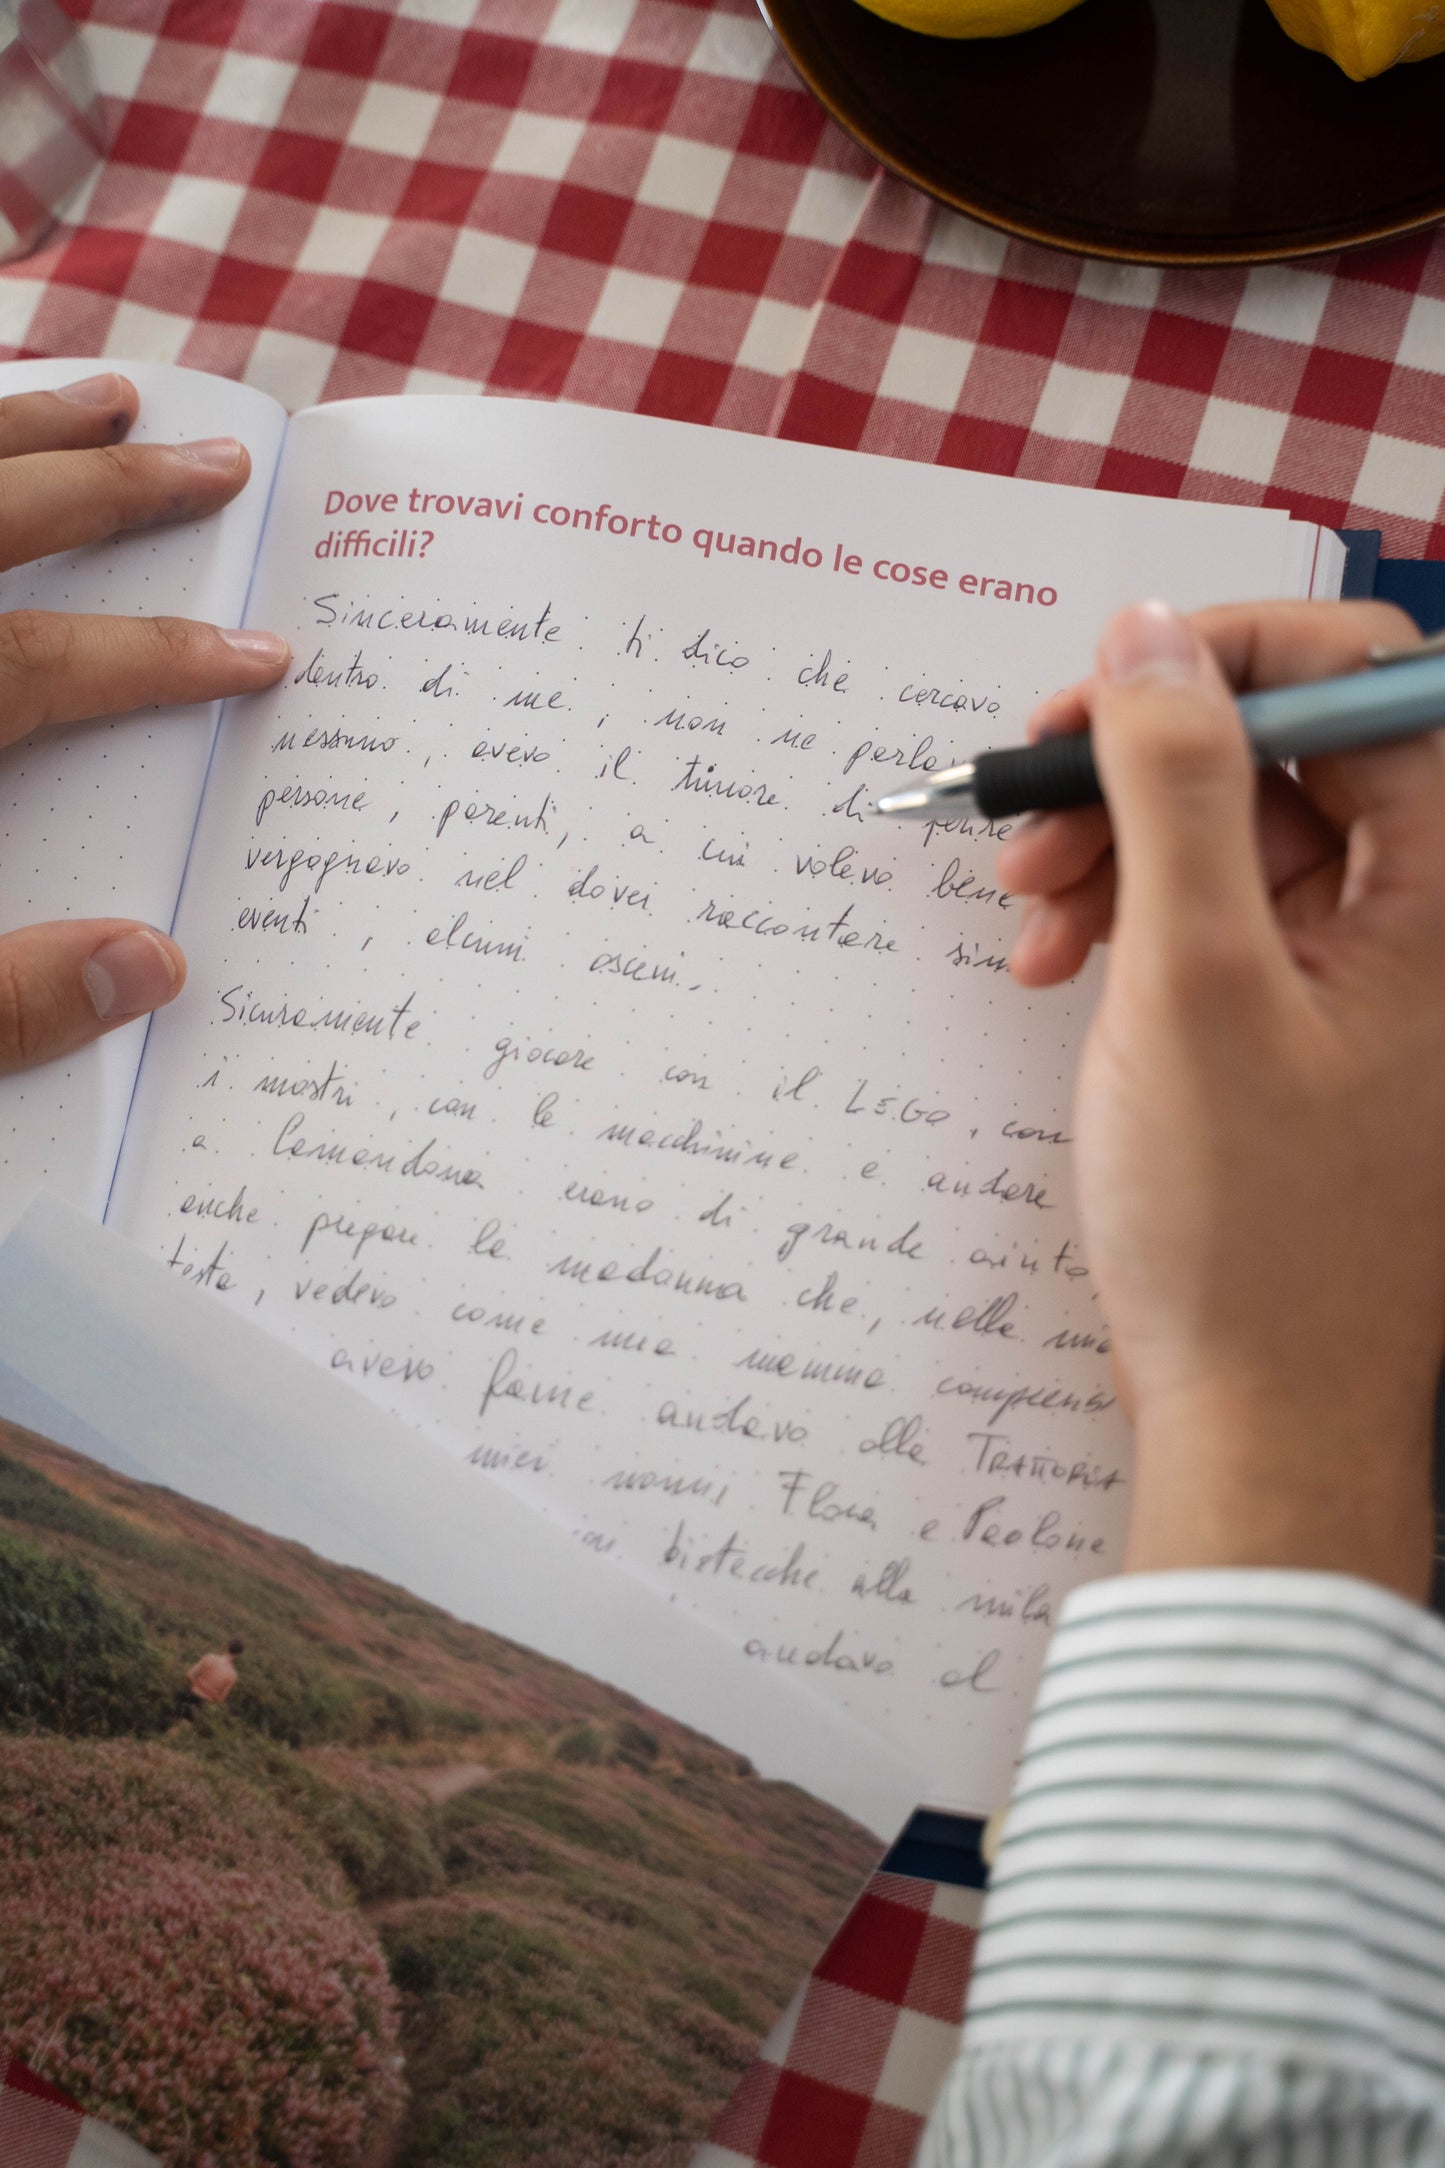 Dove trovavi conforto quando le cose erano
difficili?
Sinceramente ti dico che cercavo
dentro di me, non ne parla
nessuno, avevo il timore di
persone, parenti, a cui volevo bene
vergognavo nel dover raccontare
eventi, alcuni osceni,
Sicuramente giocare con il LEGO, con
i mostri, con le macchinine e andare
a Camandona erano di grande aiuto,
anche pregare la madonna che, nella mia
testa, vedevo come mia mamma
avevo fame andavo alla TRATTORIA
miei nonni Flora e Paolone
bistecche alla mila
andavo al